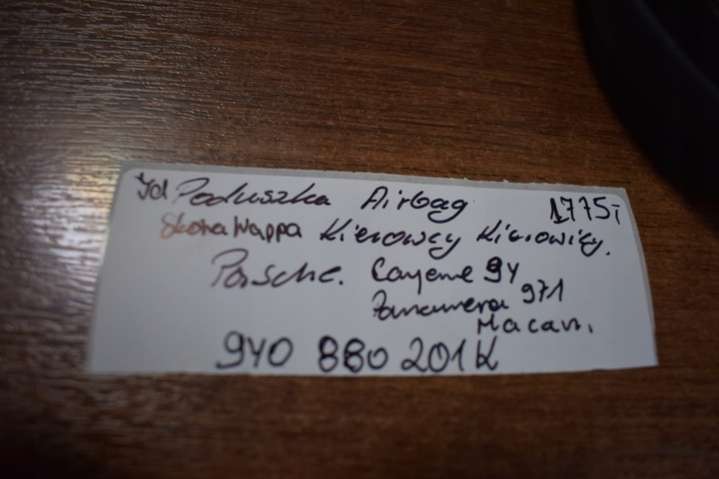 Id Poduszka Airbag 1775i
Skóra Nappa Kierowcy Kierowicy.
Porsche. Cayenne 9Y
Panamera 971
Macan.
9Y0 880 201K